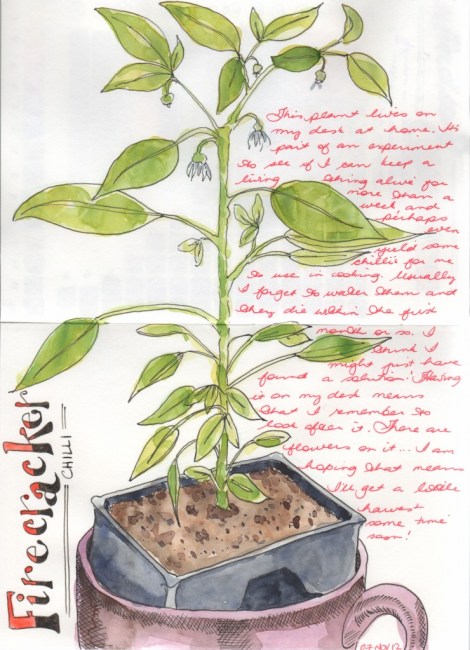 This plant lives on
my desk at home. It's
part of an experiment
to see if I can keep a
living thing alive for
more than a
week and
perhaps
even
yield some
chilli's for me
to use in cooking. Usually
I forget to water them and
they die within the first
month or so. I
think I
might just have
found a solution! Having
it on my desk means
that I remember to
look after it. There are
flowers on it... I am
hoping that means
I'll get a little
harvest
some time
soon!
Firecracker
CHILLI
07 NOV 12